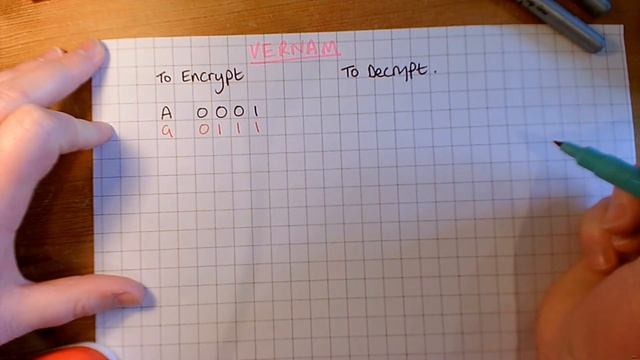 VERNAM
To Encrypt To Decrypt.
A 0 0 0 1
G 0 1 1 1